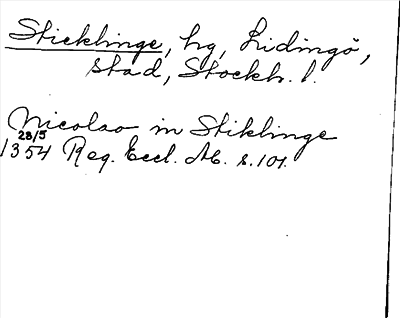 Sticklinge, hg, Lidingö,
stad, Stockh. l.
Nicolao in Stiklinge
28/5
1354 Reg. Eccl. Ab. s. 101.